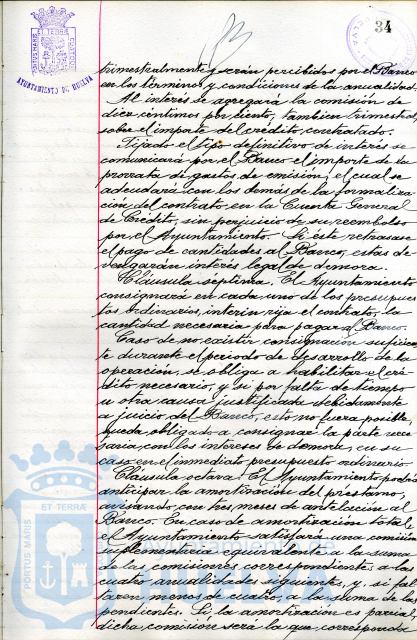 34
PORTUS MARIS ET TERRÆ CUSTODIA
AYUNTAMIENTO DE HUELVA
trimestralmente y serán percibidos por el Banco
en los términos y condiciones de la anualidad.
Al interés se agregará la comisión de
diez céntimos por ciento, tambien trimestral,
sobre el importe del crédito, contratado.
Fijado el tipo definitivo de interés se
comunicará por el Banco el importe de la
prorrata de gastos de emisión, el cual se
adeudará con los demás de la formaliza-
ción del contrato en la Cuenta General
de Crédito, sin perjuicio de su reembolso
por el Ayuntamiento. Si éste retrasase
el pago de cantidades al Banco, estas de-
vengarán interés legal de demora.
Cláusula septima. El Ayuntamiento
consignará en cada uno de los presupues-
tos ordinarios, interin rija el contrato, la
cantidad necesaria para pagar al Banco.
Caso de no existir consignación suficien-
te durante el periodo de desarrollo de la
operación, se obliga a habilitar el cré-
dito necesario, y si por falta de tiempo
u otra causa justificada debidamente
a juicio del Banco, esto no fuera posible,
queda obligado a consignar la parte nece-
saria, con los intereses de demora, en su
caso en el inmediato presupuesto ordinario
Cláusula octava. El Ayuntamiento podrá
anticipar la amortización del prestamo,
avisando con tres meses de antelación al
Banco. En caso de amortización total
el Ayuntamiento satisfará una comisión
suplementaria equivalente a la suma
de las comisiones correspondientes a las
cuatro anualidades siguientes, y si fal-
taren menos de cuatro, a la suma de las
pendientes. Si la amortización es parcial
dicha comisión será la que corresponda
PORTUS MARIS ET TERRÆ
Ayuntamiento de
HUELVA